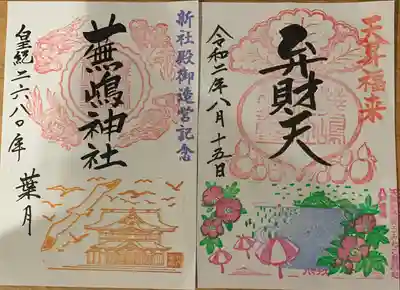 新社殿御造営記念
蕪嶋神社
皇紀二六八〇年 葉月
天昇福来
弁財天
令和二年八月十五日